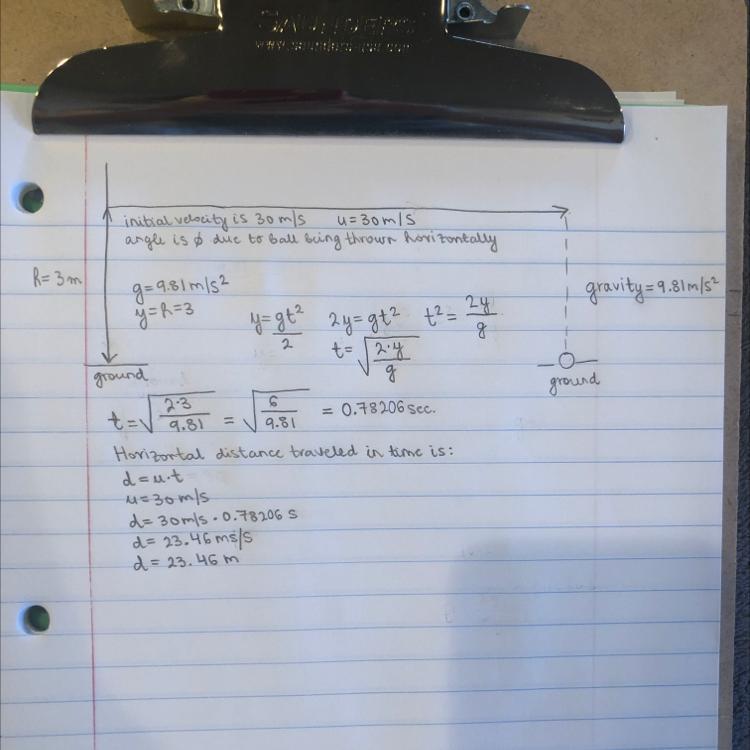 SAUNDERS
initial velocity is 30 m/s u=30m/s
angle is ϕ due to ball being thrown horizontally
h=3m
g=9.81m/s²
y=h=3
gravity=9.81m/s²
y=gt²/2 2y=gt² t²=2y/g
t=√(2·y/g)
ground
ground
t=√(2·3/9.81) = √(6/9.81) = 0.78206 sec.
Horizortal distance traveled in time is:
d=u·t
u=30m/s
d=30m/s·0.78206 s
d=23.46ms/s
d=23.46 m